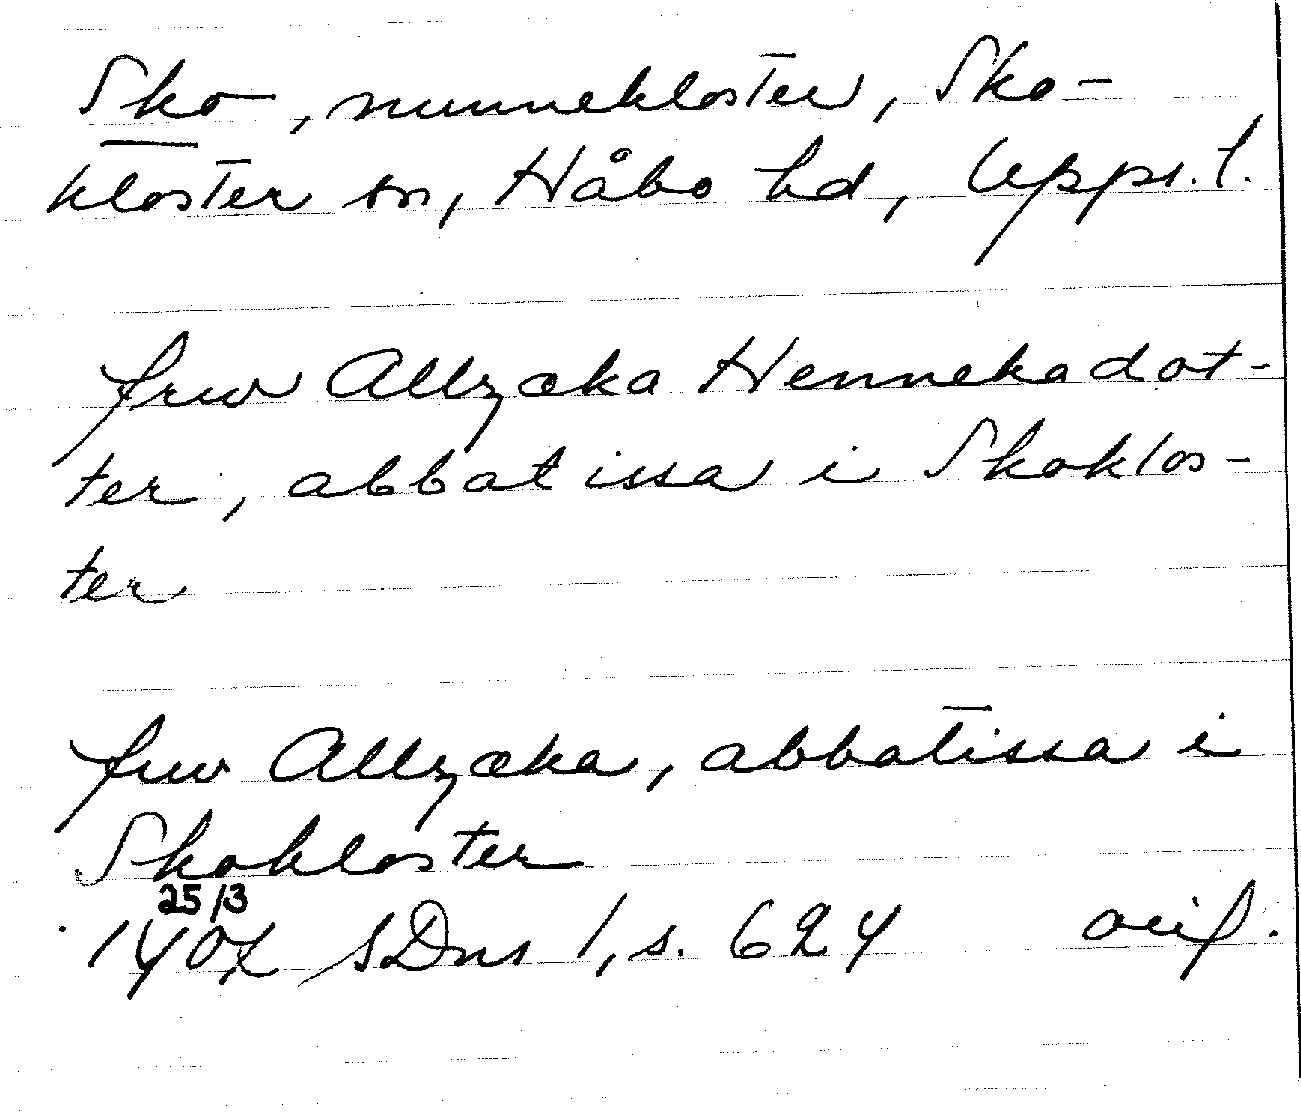 Sko, nunnekloster, Sko-
kloster sn, Håbo hd, Upps. l.
frw Allzcka Hennekadot-
ter, abbatissa i Skoklos-
ter
frw Allzcka, abbatissa i
Skokloster
25/3
1407 SDns 1, s. 624 orig.